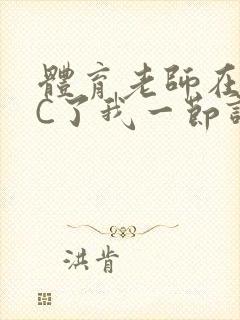 體育老師在
C了我一節
洪肯